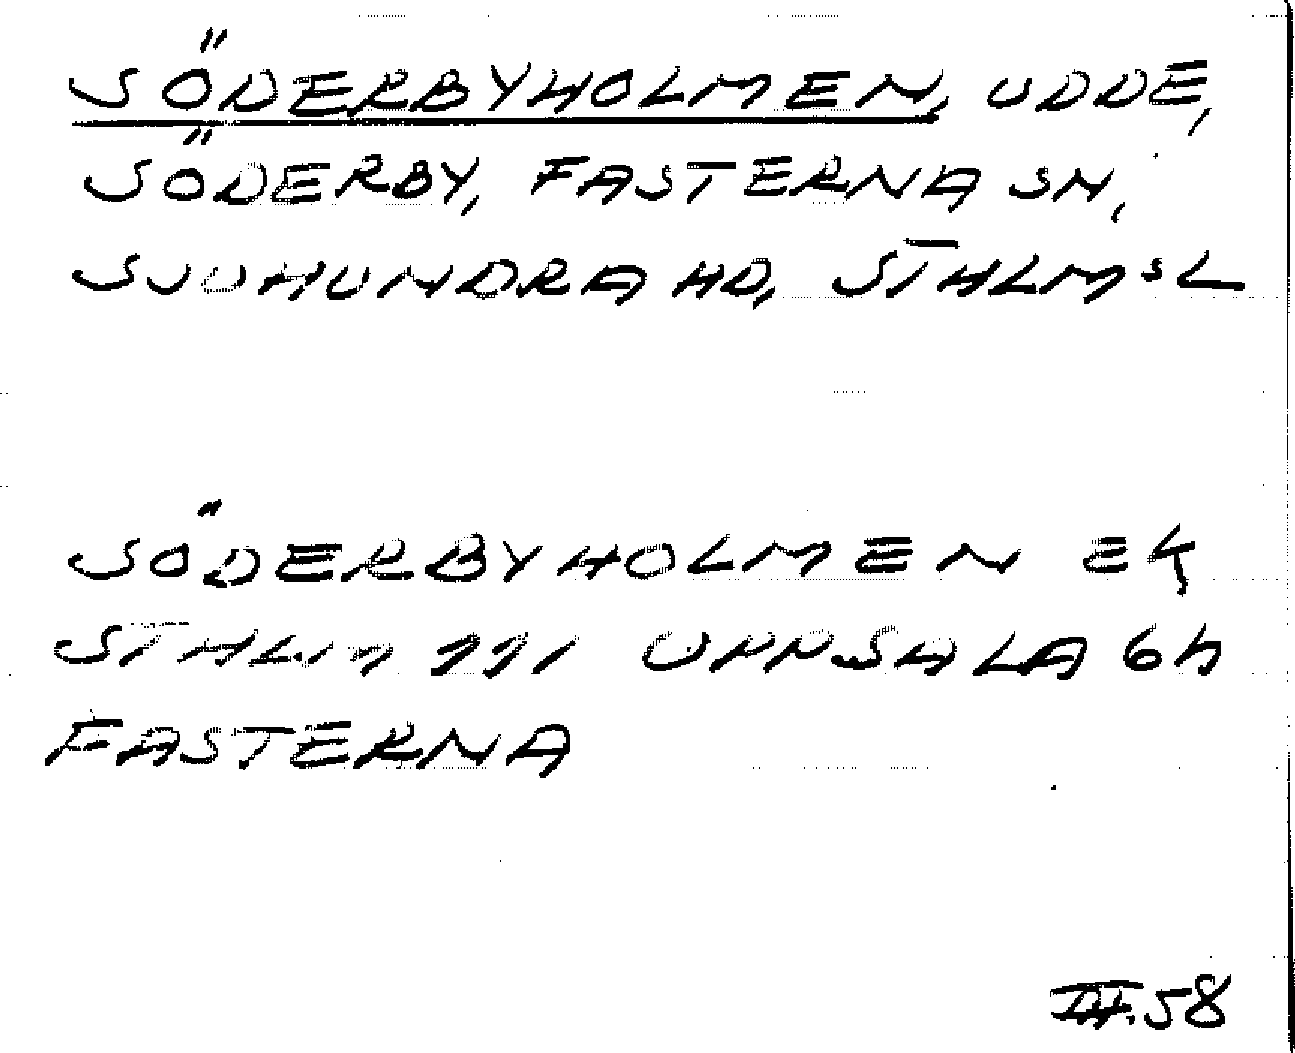 SÖDERBYHOLMEN, UDDE,
SÖDERBY, FASTERNA SN,
SJUHUNDRA HD, STHLMSL
SÖDERBYHOLMEN EK
STHLM 111 UPPSALA 6h
FASTERNA
58